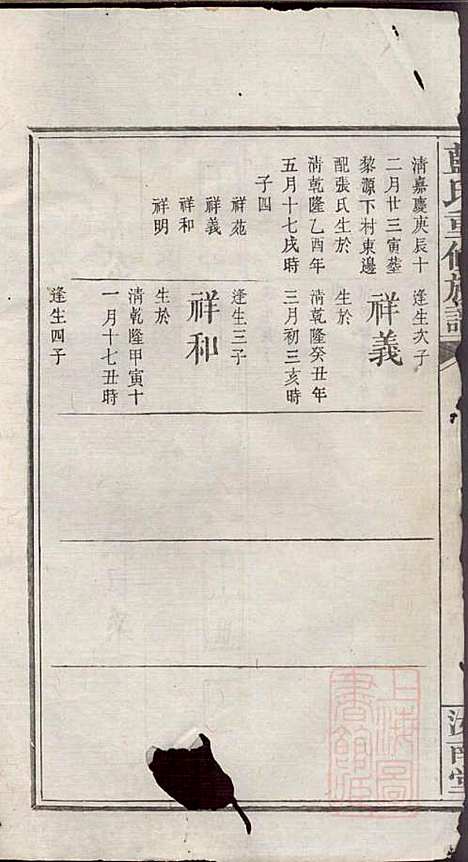 藍氏重修族譜
汝南堂
清嘉慶庚辰十
二月廿三寅塟
黎源下村東邊
配張氏生於
清乾隆乙酉年
五月十七戌時
子四
祥苑
祥義
祥和
祥明
逢生次子
祥義
生於
清乾隆癸丑年
三月初三亥時
逢生三子
祥和
生於
清乾隆甲寅十
一月十七丑時
逢生四子
上海圖
書館藏